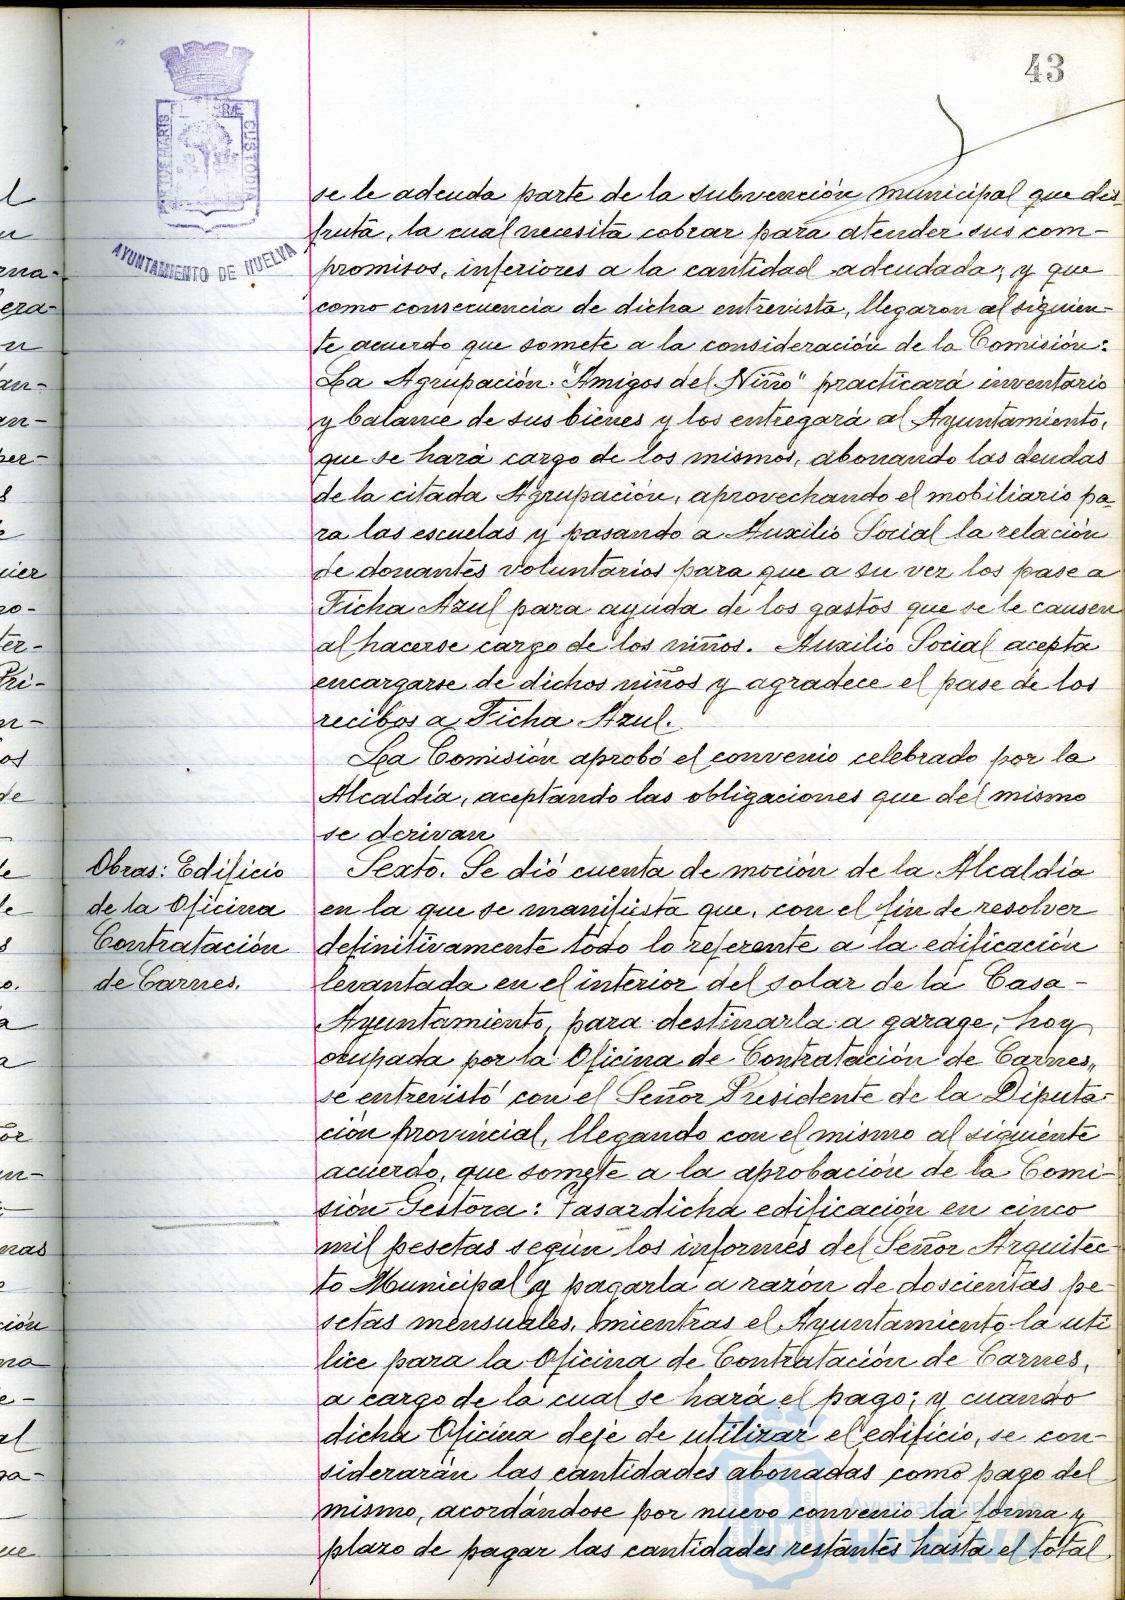 43
AYUNTAMIENTO DE HUELVA
se le adeuda parte de la subvención municipal que dis-
fruta, la cual necesita cobrar para atender sus com-
promisos, inferiores a la cantidad adeudada; y que
como consecuencia de dicha entrevista, llegaron al siguien-
te acuerdo que somete a la consideración de la Comisión:
La Agrupación "Amigos del Niño" practicará inventario
y balance de sus bienes y los entregará al Ayuntamiento,
que se hará cargo de los mismos, abonando las deudas
de la citada Agrupación, aprovechando el mobiliario pa-
ra las escuelas y pasando a Auxilio Social la relación
de donantes voluntarios para que a su vez los pase a
Ficha Azul para ayuda de los gastos que se le causen
al hacerse cargo de los niños. Auxilio Social acepta
encargarse de dichos niños y agradece el pase de los
recibos a Ficha Azul.
La Comisión aprobó el convenio celebrado por la
Alcaldía, aceptando las obligaciones que del mismo
se derivan
Obras: Edificio
de la Oficina
Contratación
de Carnes.
Sexto. Se dió cuenta de moción de la Alcaldía
en la que se manifiesta que, con el fin de resolver
definitivamente todo lo referente a la edificación
levantada en el interior del solar de la Casa-
Ayuntamiento, para destinarla a garage, hoy
ocupada por la Oficina de Contratación de Carnes,
se entrevistó con el Señor Presidente de la Diputa-
ción provincial, llegando con el mismo al siguiente
acuerdo, que somete a la aprobación de la Comi-
sión Gestora: Tasar dicha edificación en cinco
mil pesetas según los informes del Señor Arquitec-
to Municipal y pagarla a razón de doscientas pe-
setas mensuales, mientras el Ayuntamiento la uti
lice para la Oficina de Contratación de Carnes,
a cargo de la cual se hará el pago; y cuando
dicha Oficina deje de utilizar el edificio, se con-
siderarán las cantidades abonadas como pago del
mismo, acordándose por nuevo convenio la forma y
plazo de pagar las cantidades restantes hasta el total
Ayuntamiento de
HUELVA